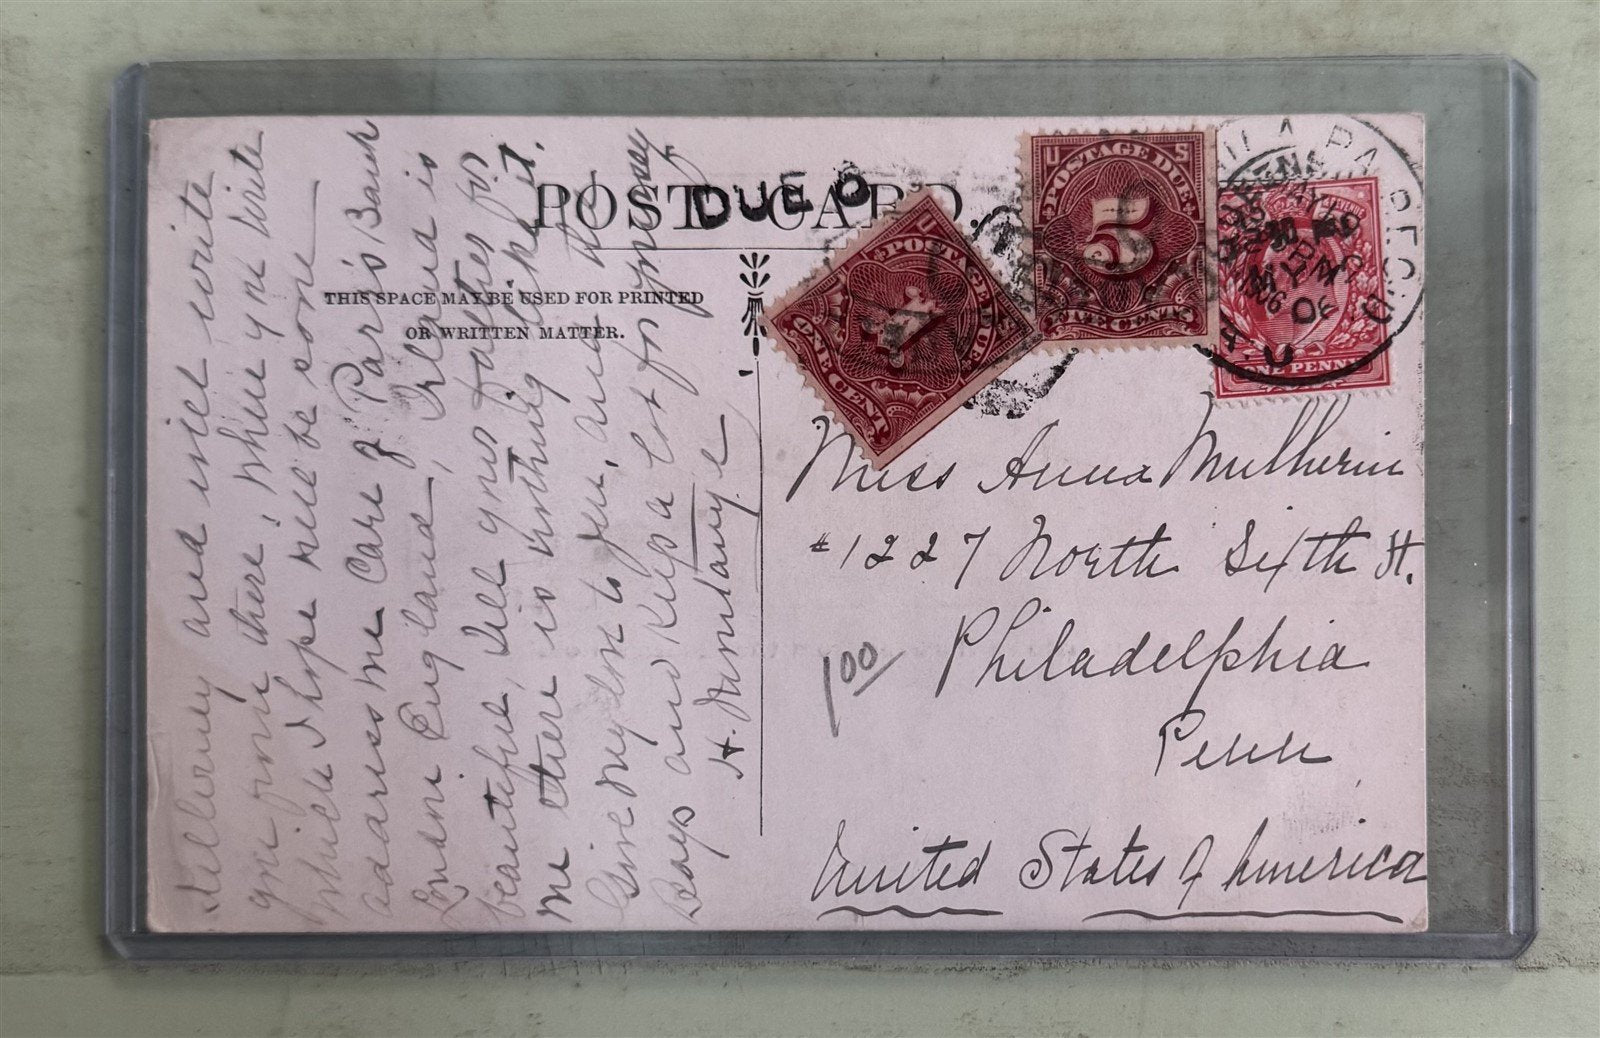 POST CARD.
DUE 6
THIS SPACE MAY BE USED FOR PRINTED
OR WRITTEN MATTER.
and will write
you from there; when you write
which I hope will be soon
address me care of Parr's Bank
London England, Ireland is
beautiful, tell your father for
me there is nothing like it.
Give my love to you, and the
Boys and keep a lot for
U S
POSTAGE DUE
1
ONE CENT
U S
POSTAGE DUE
5
FIVE CENTS
ONE PENNY
PHILA PA
Miss Anna Mulherin
#1227 North Sixth St.
Philadelphia
Penn
United States of America
1 00